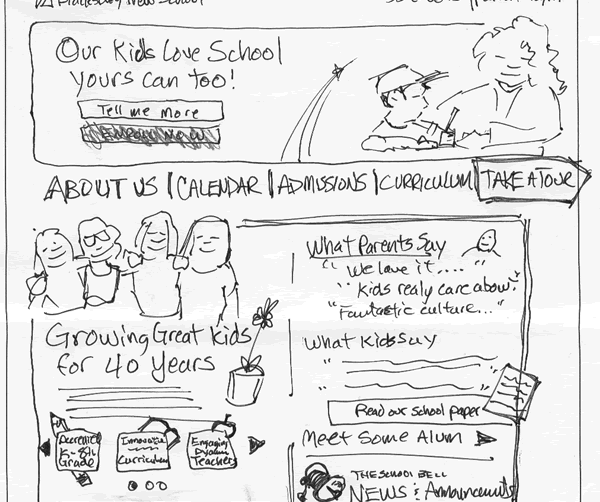 New School
Our Kids Love School
yours can too!
Tell me more
ABOUT US | CALENDAR | ADMISSIONS | CURRICULUM | TAKE A TOUR
What Parents Say
"We love it....."
"Kids realy care about.."
"Fantastic culture..."
Growing Great kids
for 40 years
What Kids Say
Read our school paper
Meet Some Alum
Accredited
K-8th
Grade
Innovative
Curriculum
Engaging
Teachers
THE SCHOOL BELL
NEWS & Announcements